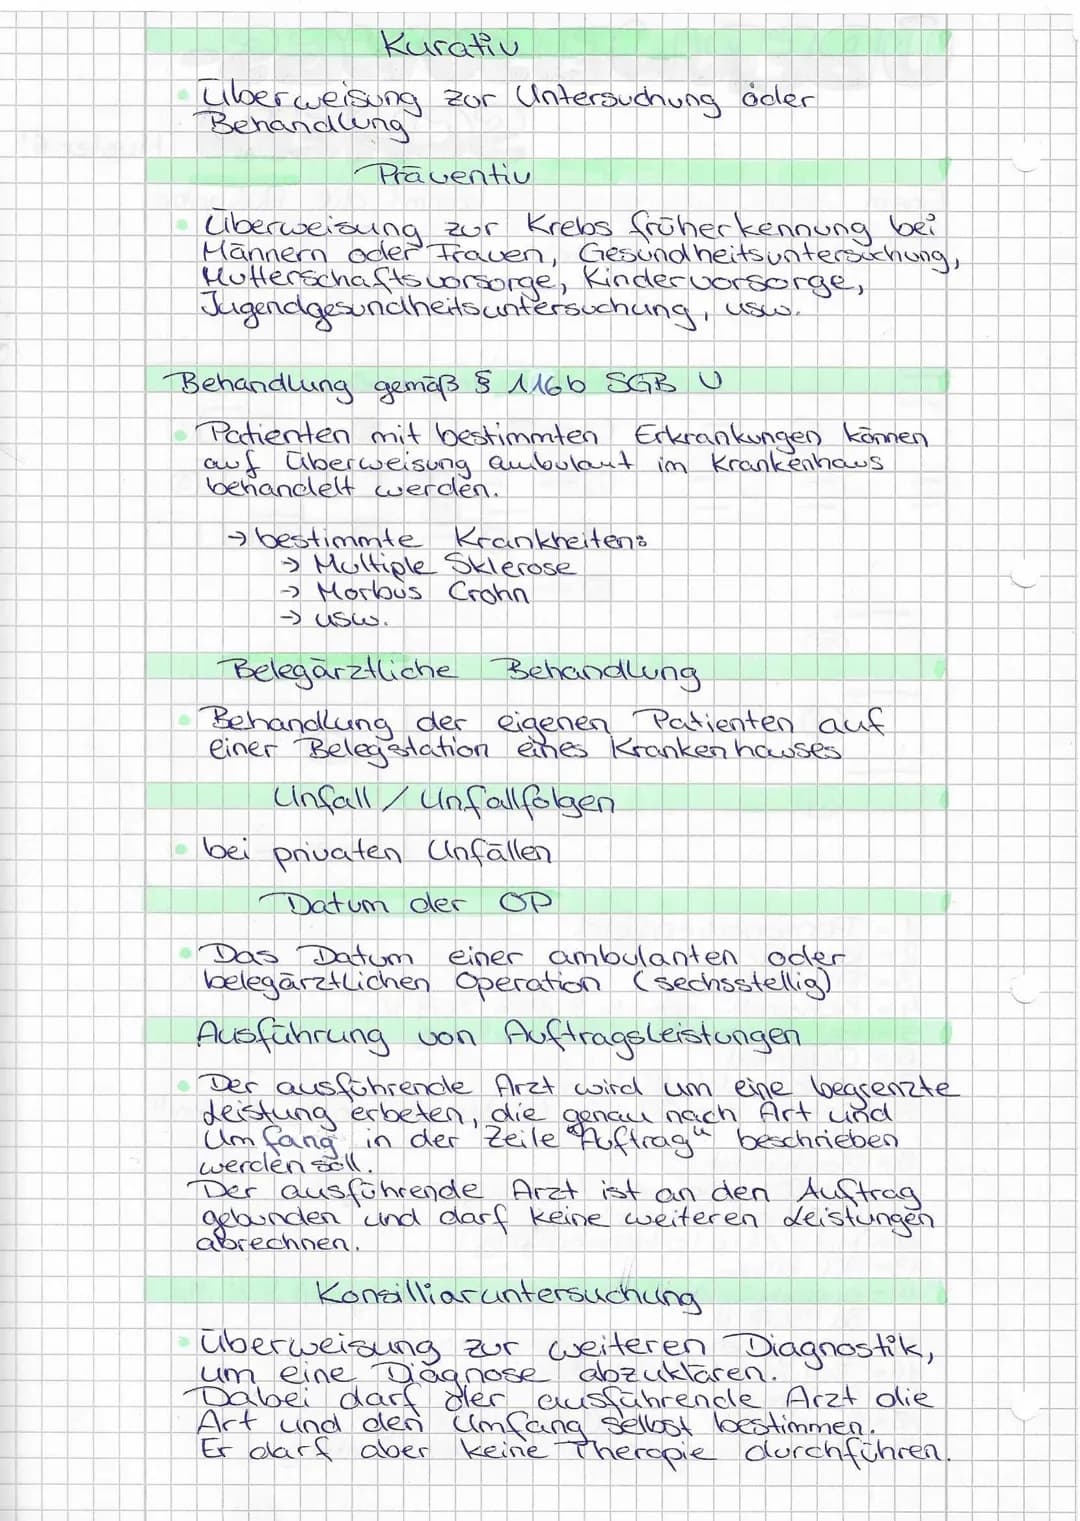 Kurativ
• Überweisung zur Untersuchung oder
Behandlung
Präventiv
• Überweisung zur Krebsfrüherkennung bei
Männern oder Frauen, Gesundheitsuntersuchung,
Mutterschaftsvorsorge, Kindervorsorge,
Jugendgesundheitsuntersuchung, usw.
Behandlung gemäß § 116b SGB V
• Patienten mit bestimmten Erkrankungen können
auf Überweisung ambulant im Krankenhaus
behandelt werden.
→ bestimmte Krankheiten:
→ Multiple Sklerose
→ Morbus Crohn
→ usw.
Belegärztliche Behandlung
• Behandlung der eigenen Patienten auf
einer Belegstation eines Krankenhauses
Unfall / Unfallfolgen
• bei privaten Unfällen
Datum der OP
• Das Datum einer ambulanten oder
belegärztlichen Operation (sechsstellig)
Ausführung von Auftragsleistungen
• Der ausführende Arzt wird um eine begrenzte
Leistung erbeten, die genau nach Art und
Umfang in der Zeile "Auftrag" beschrieben
werden soll.
Der ausführende Arzt ist an den Auftrag
gebunden und darf keine weiteren Leistungen
abrechnen.
Konsilliaruntersuchung
• Überweisung zur weiteren Diagnostik,
um eine Diagnose abzuklären.
Dabei darf der ausführende Arzt die
Art und den Umfang selbst bestimmen.
Er darf aber keine Therapie durchführen.